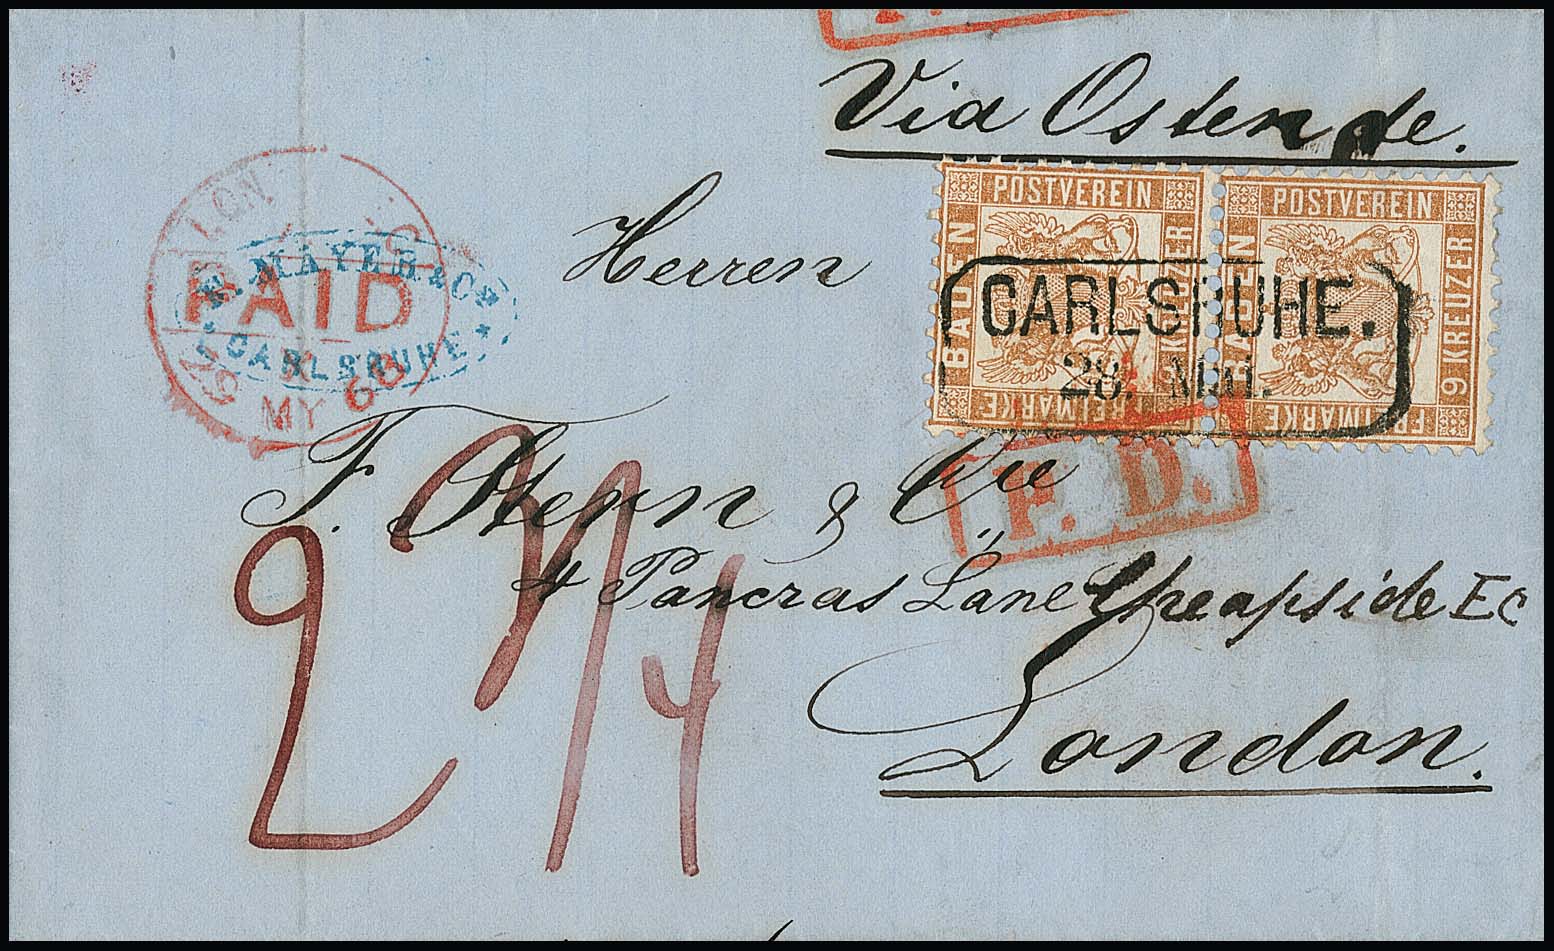 Via Ostende.
POSTVEREIN
BADEN
9 KREUZER
FREIMARKE
POSTVEREIN
BADEN
9 KREUZER
FREIMARKE
CARLSRUHE.
28. Mai.
LON
PAID
MY
MAYER & Co
CARLSRUHE
Herren
F. Stern & Cie
P. D.
4 Pancras Lane Cheapside EC
London.
2 3/4